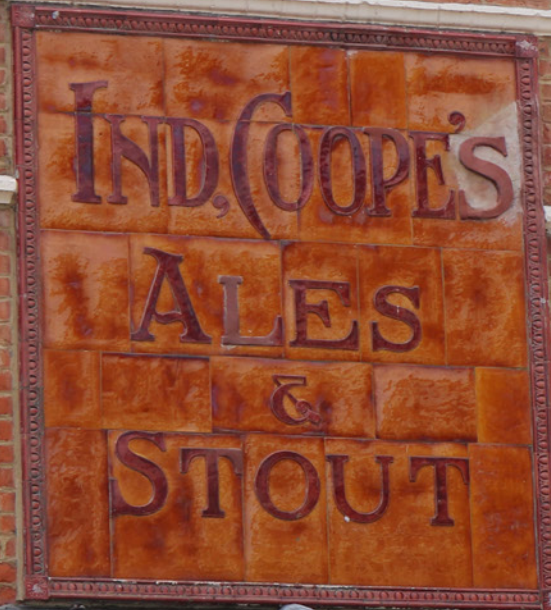 IND, COOPE'S
ALES
&
STOUT